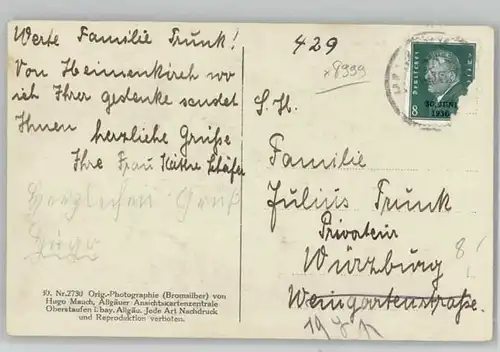 Werte Familie Trunk!
Von Heimenkirch wo
ich Ihrer gedenke sendet
Ihnen herzliche Grüße
Ihre Frau Käthe Schäfer
Herzlichen Gruß
10. Nr. 2730 Orig.-Photographie (Bromsilber) von
Hugo Mauch, Allgäuer Ansichtskartenzentrale
Oberstaufen i. bay. Allgäu. Jede Art Nachdruck
und Reproduktion verboten.
429
x8999
8
30. JUNI
1930
S. H.
Familie
Julius Trunk
Privatier
Würzburg
Weingartenstraße.
8!